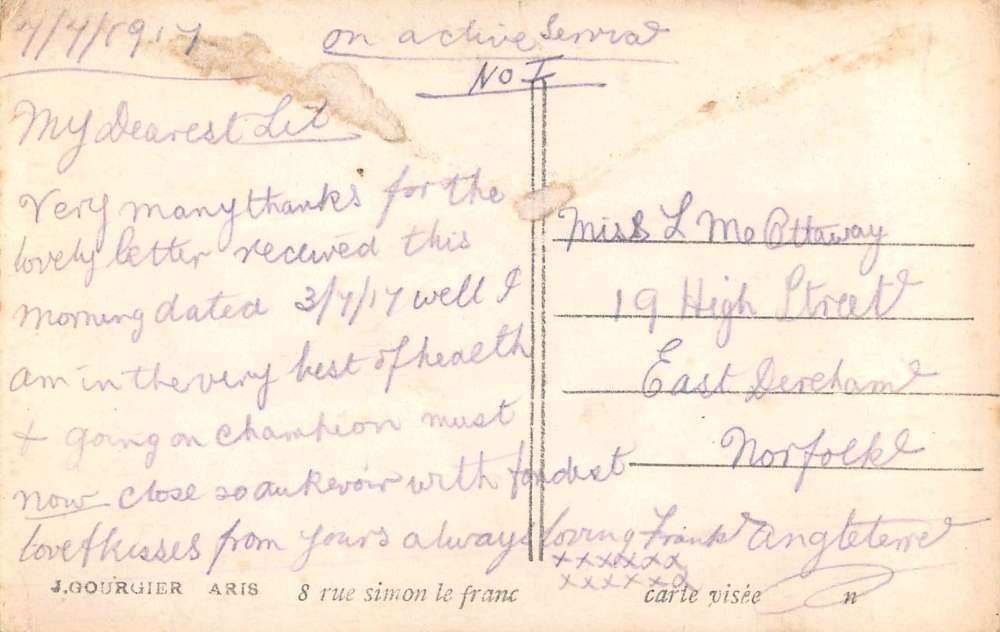 7/7/1917
on active Service
No I
My Dearest Lil
Very many thanks for the
lovely letter received this
morning dated 3/7/17 well I
am in the very best of health
+ going on champion must
now close so aukevoir with fondest
love & kisses from yours always loving Frank
xxxxxx
xxxxxx
Miss L Mc Ottaway
19 High Street
East Dereham
Norfolk
Angleterre
J.GOURGIER ARIS 8 rue simon le franc carte visée n